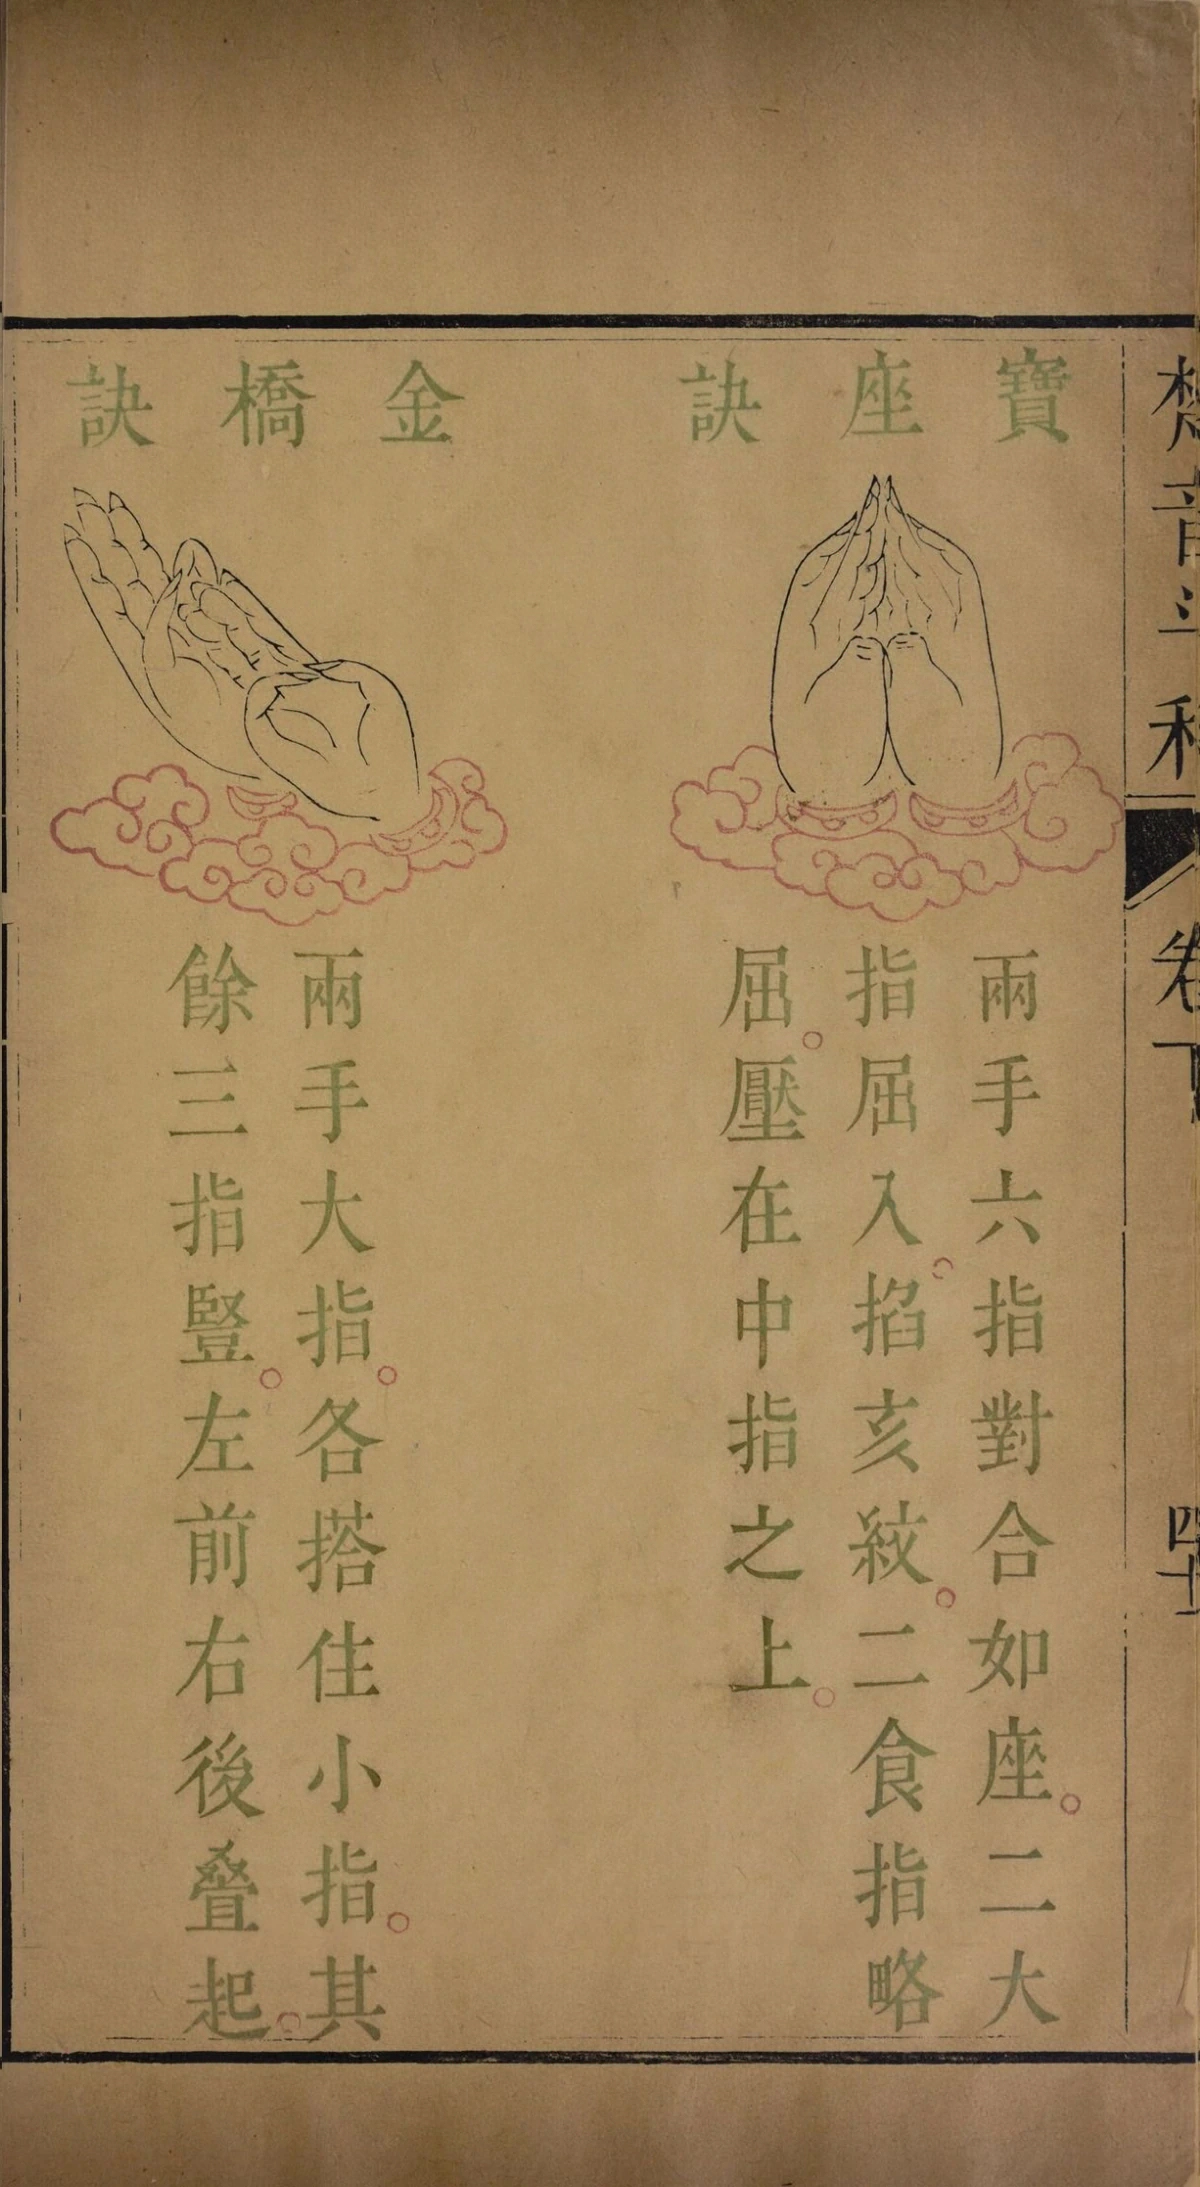 梵音斗科
卷下
四十一
寶座訣
兩手六指對合如座。二大
指屈入。掐亥紋。二食指略
屈。壓在中指之上。
金橋訣
兩手大指。各搭住小指。其
餘三指豎。左前右後叠起。